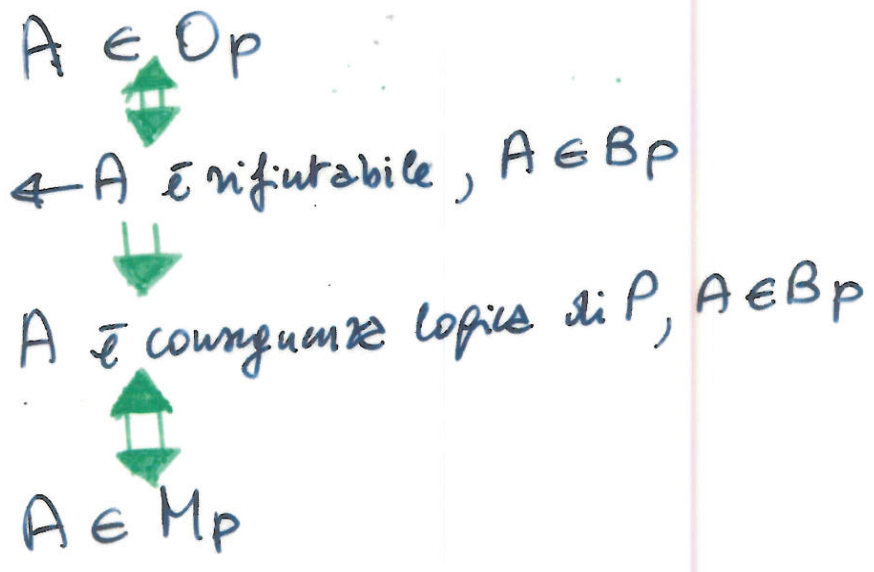 A ∈ Op
← A ē rifiutabile, A ∈ Bp
A ē conseguenza logica di P, A ∈ Bp
A ∈ Mp